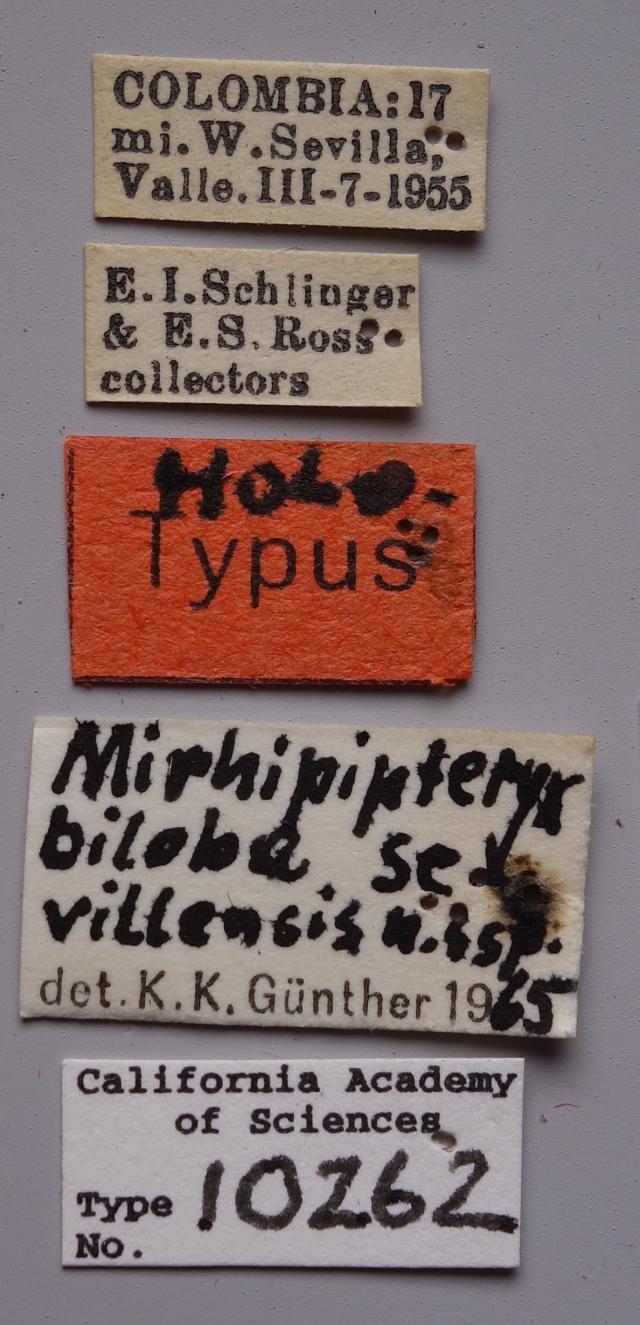 COLOMBIA:17
mi. W. Sevilla,
Valle. III-7-1955
E. I. Schlinger
& E. S. Ross
collectors
HOLO-
Typus
Mirhipipteryx
biloba se-
villensis n.ssp.
det. K. K. Günther 1965
California Academy
of Sciences
Type
No. 10262